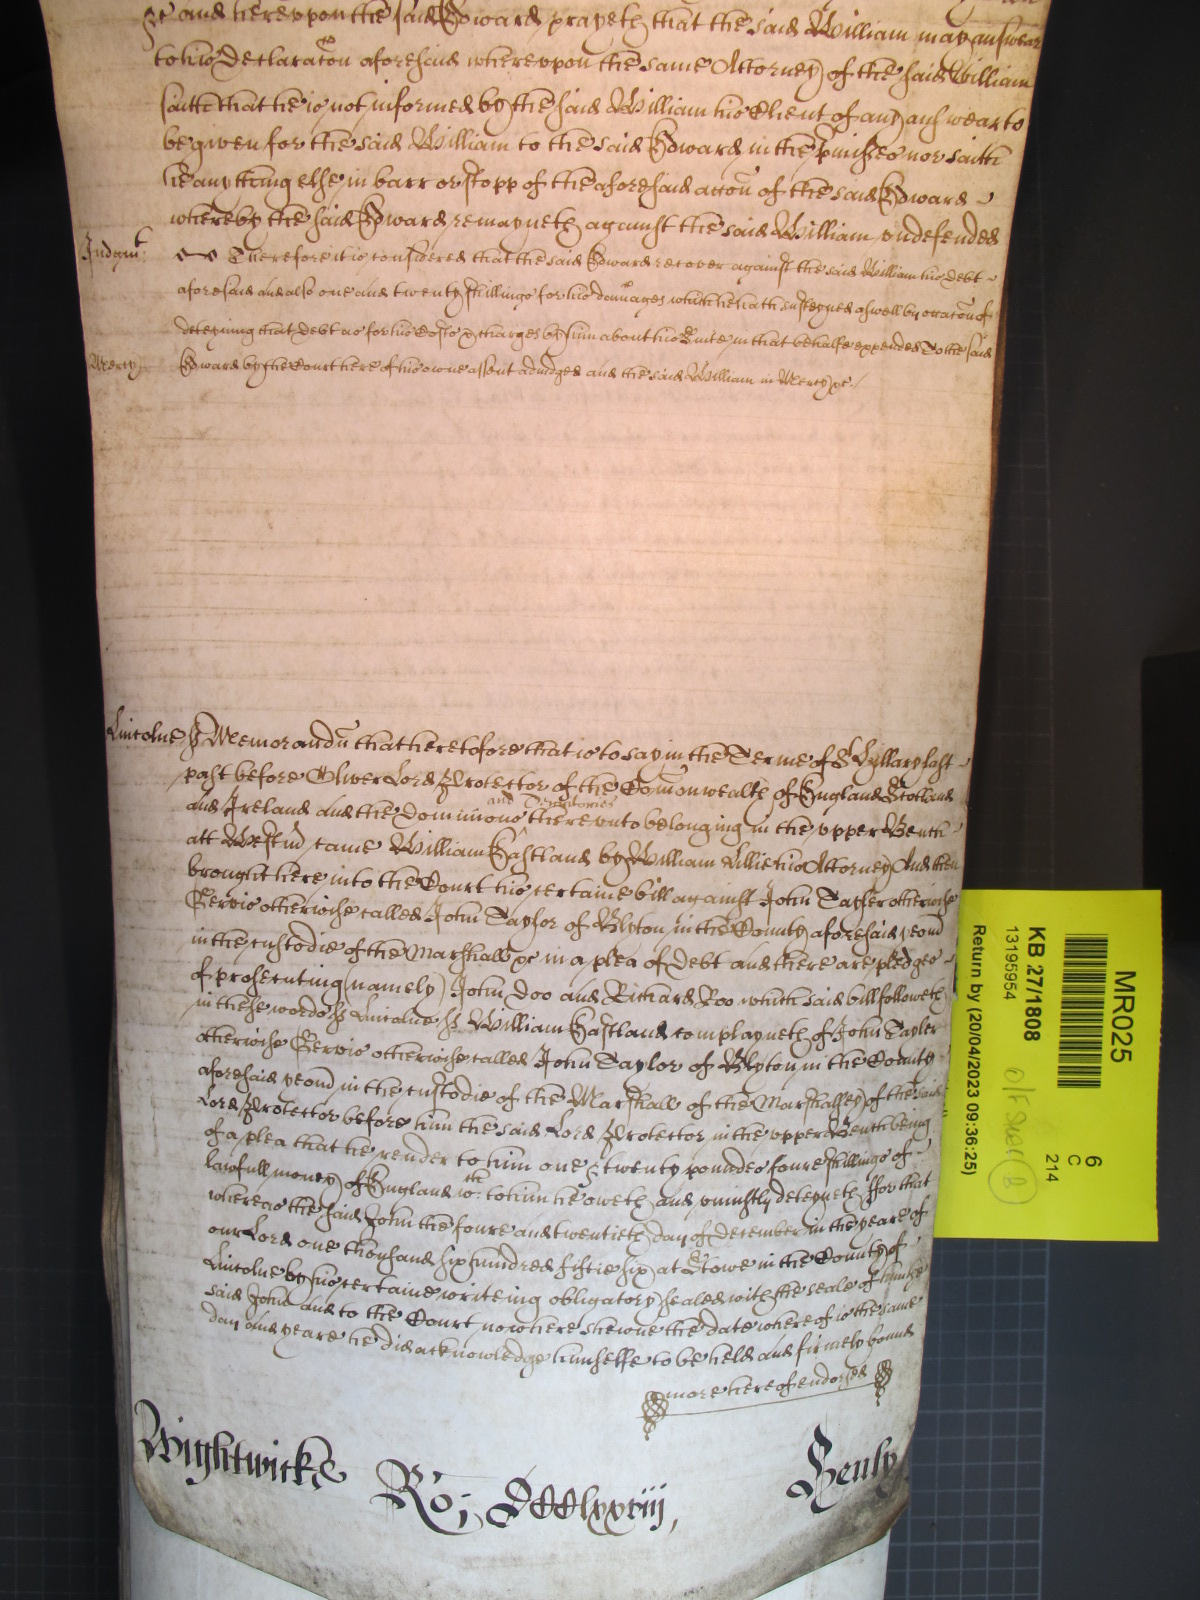 &c And hereupon the said Edward prayeth that the said William may answear
to his Declaracon aforesaid whereupon the same Attorney of the said William
saith that he is not informed by the said William his Client of any answear to
be given for the said William to the said Edward in the pmisses nor saith
he anything else in barr or stopp of the aforesaid accon of the said Edward
whereby the said Edward remayneth against the said William undefended
Judgmt: Therefore it is considered that the said Edward recover against the said William his debt
aforesaid and also one and twenty shillings for his damages which he hath susteyned aswell by occacon of
deteyning that debt as for his Costs & charges by him about his suite in that behalfe expended To the said
Mercy: Edward by the Court here of his owne assent adiudged and the said William in Mercy &c /
Lincolne ss Memorandu that heretofore that is to say in the Terme of St Hillary last
past before Oliver Lord Protector of the Comonwealth of England Scotland
and Ireland and the Dominions and Territories thereunto belonging in the upper Bench
att Westm came William Eastland by William Ellie his Attorney And then
brought here into the Court his certaine bill against John Tayler otherwise
Gervis otherwise called John Taylor of Blyton in the County aforesaid yeom
in the custodie of the Marshall &c in a plea of Debt and there are pledges
of prosecuting (namely) John Doo and Richard Roo which said bill followeth
in these words ss Lincolne ss William Eastland complayneth of John Tayler
otherwise Gervis otherwise called John Taylor of Blyton in the County
aforesaid yeom in the custodie of the Marshall of the Marshalsey of the said
Lord Protector before him the said Lord Protector in the upper Bench being
of a plea that he render to him one & twenty pounds foure shillings of
lawfull money of England wch to him he oweth and uniustly deteyneth For that
whereas the said John the foure and twentieth day of December in the yeare of
our Lord one thousand six hundred fiftie six at Stowe in the County of
Lincolne by his certaine writeing obligatory sealed with the seale of him the
said John and to the Court now here shewne the date whereof is the same
day and yeare he did acknowledge himselfe to be held and firmely bound
more hereof endorsed
Wightwicke Ro: CCCClxxviij Henly
MR025
6
C
214
KB 27/1808
13195954
Return by (20/04/2023 09:36:25)